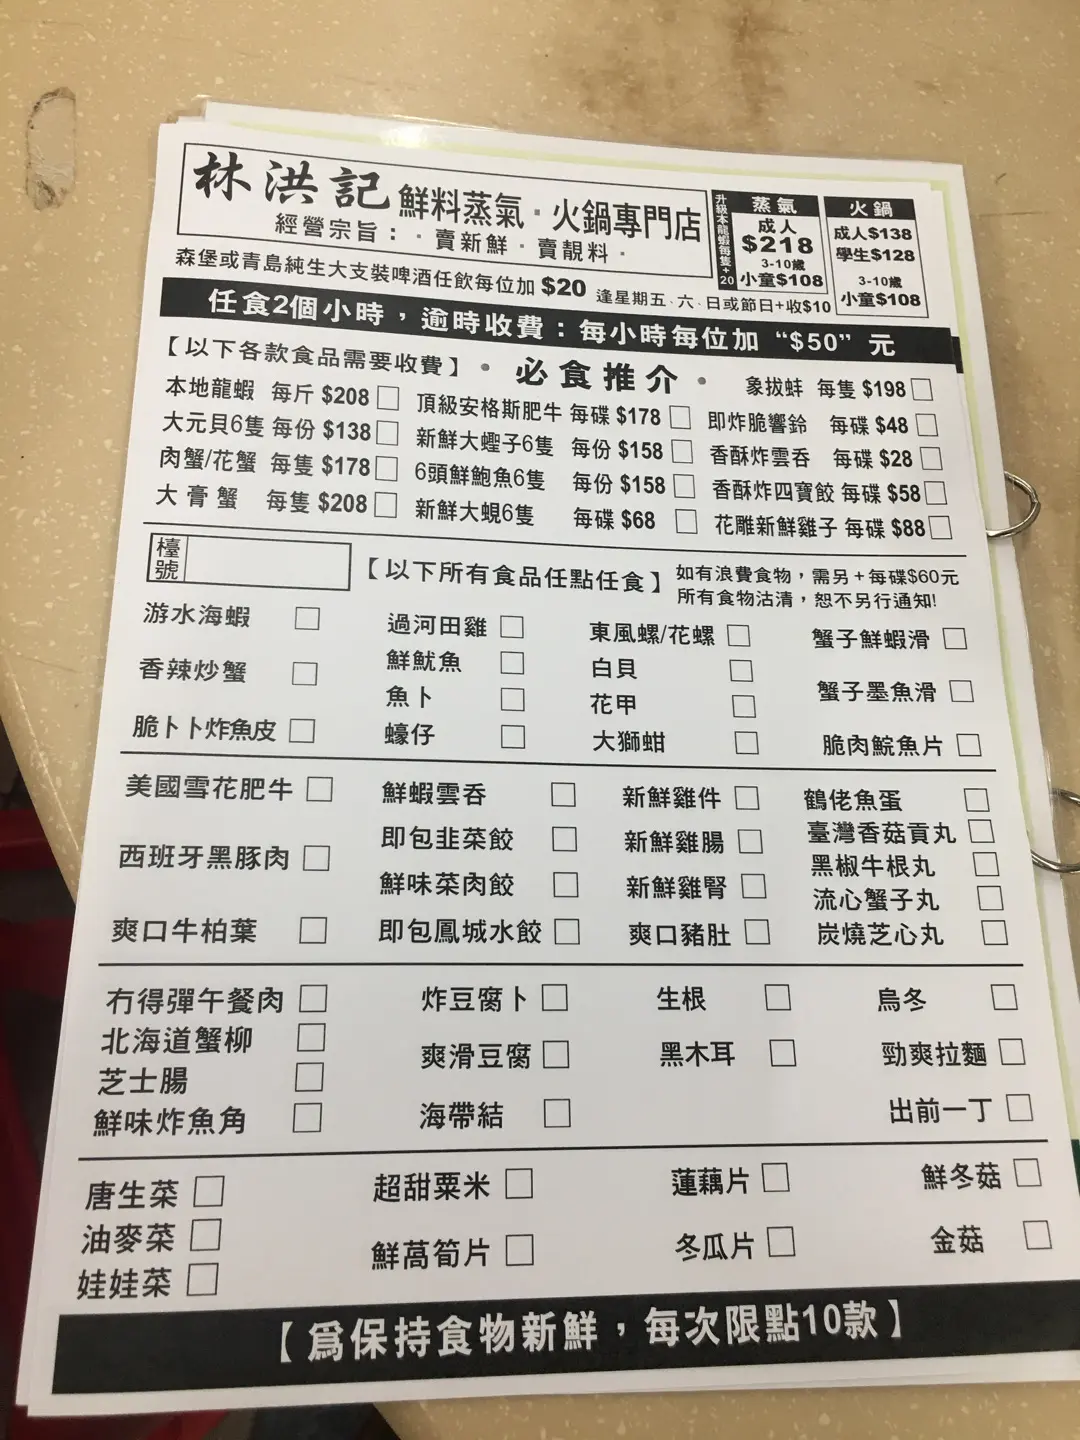 林洪記 鮮料蒸氣·火鍋專門店
經營宗旨：·賣新鮮·賣靚料·
升級本龍蝦每隻+20
蒸氣
成人
$218
3-10歲
小童$108
火鍋
成人$138
學生$128
3-10歲
小童$108
森堡或青島純生大支裝啤酒任飲每位加 $20 逢星期五·六·日或節日+收$10
任食2個小時，逾時收費：每小時每位加 “$50” 元
【以下各款食品需要收費】·必食推介·
本地龍蝦 每斤 $208
大元貝6隻 每份 $138
肉蟹/花蟹 每隻 $178
大膏蟹 每隻 $208
頂級安格斯肥牛 每碟 $178
新鮮大蟶子6隻 每份 $158
6頭鮮鮑魚6隻 每份 $158
新鮮大蜆6隻 每碟 $68
象拔蚌 每隻 $198
即炸脆響鈴 每碟 $48
香酥炸雲吞 每碟 $28
香酥炸四寶餃 每碟 $58
花雕新鮮雞子 每碟 $88
檯號
【以下所有食品任點任食】
如有浪費食物，需另+每碟$60元
所有食物沽清，恕不另行通知!
游水海蝦
香辣炒蟹
脆卜卜炸魚皮
過河田雞
鮮魷魚
魚卜
蠔仔
東風螺/花螺
白貝
花甲
大獅蚶
蟹子鮮蝦滑
蟹子墨魚滑
脆肉鯇魚片
美國雪花肥牛
西班牙黑豚肉
爽口牛柏葉
鮮蝦雲吞
即包韭菜餃
鮮味菜肉餃
即包鳳城水餃
新鮮雞件
新鮮雞腸
新鮮雞腎
爽口豬肚
鶴佬魚蛋
臺灣香菇貢丸
黑椒牛根丸
流心蟹子丸
炭燒芝心丸
冇得彈午餐肉
北海道蟹柳
芝士腸
鮮味炸魚角
炸豆腐卜
爽滑豆腐
海帶結
生根
黑木耳
烏冬
勁爽拉麵
出前一丁
唐生菜
油麥菜
娃娃菜
超甜粟米
鮮萵筍片
蓮藕片
冬瓜片
鮮冬菇
金菇
【爲保持食物新鮮，每次限點10款】